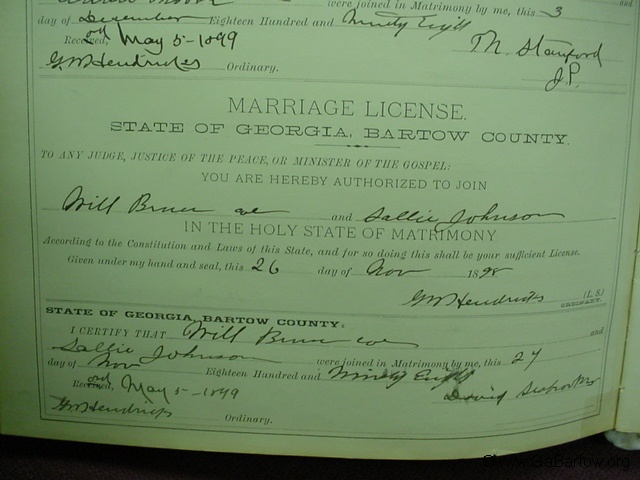 were joined in Matrimony by me, this 3 and
day of December Eighteen Hundred and Ninety Eight
Th. Stanford
J.P.
Received, May 5-1899
G.W. Hendricks Ordinary.
MARRIAGE LICENSE.
STATE OF GEORGIA, BARTOW COUNTY.
TO ANY JUDGE, JUSTICE OF THE PEACE, OR MINISTER OF THE GOSPEL:
YOU ARE HEREBY AUTHORIZED TO JOIN
Will Bruce col and Sallie Johnson
IN THE HOLY STATE OF MATRIMONY
According to the Constitution and Laws of this State, and for so doing this shall be your sufficient License.
Given under my hand and seal, this 26 day of Nov 1898
G.W. Hendricks (L. S.)
ORDINARY.
STATE OF GEORGIA, BARTOW COUNTY:
I CERTIFY THAT Will Bruce col and
Sallie Johnson were joined in Matrimony by me, this 27
day of Nov Eighteen Hundred and Ninety Eight
David
Received, May 5-1899
G.W. Hendricks Ordinary.
GaBartow.org